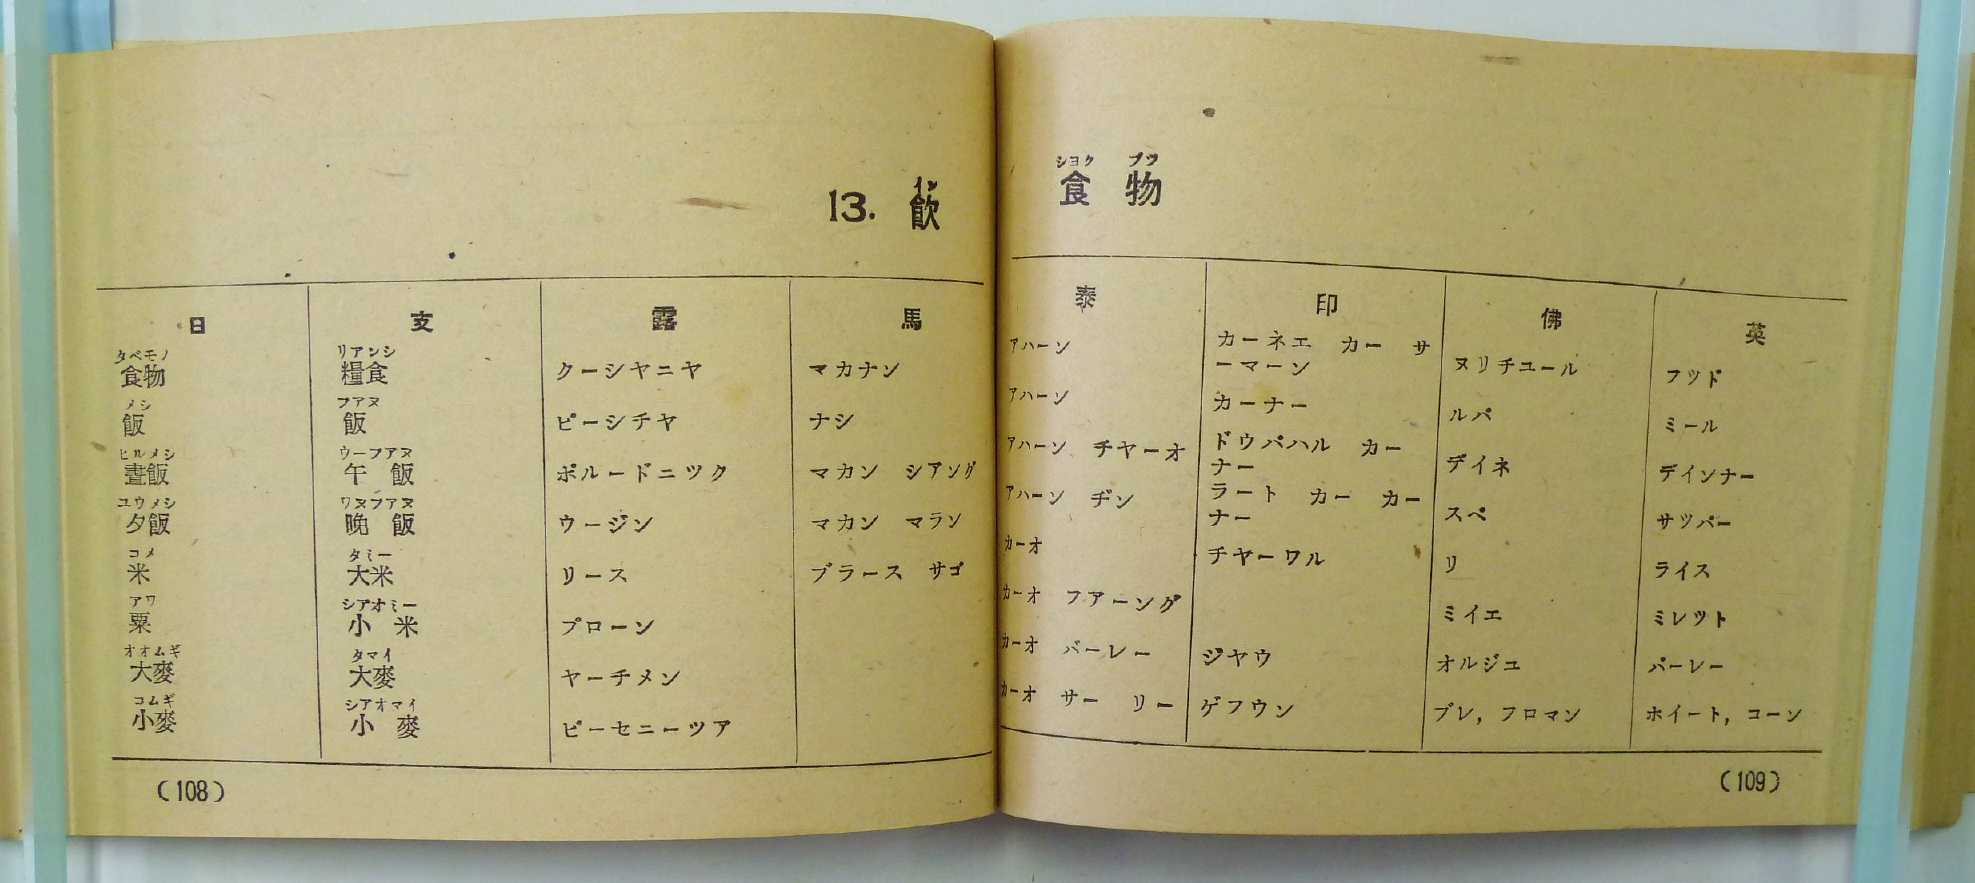 13. 飮 食 物
イン シヨク ブツ
日 支 露 馬 泰 印 佛 英
タベモノ リアンシ
食物 糧食 クーシヤニヤ マカナン アハーン カーネエ カー サーマーン ヌリチユール フツド
メシ フアヌ
飯 飯 ピーシチヤ ナシ アハーン カーナー ルパ ミール
ヒルメシ ウーフアヌ
晝飯 午飯 ポルードニツク マカン シアング アハーン チヤーオ ドウパハル カーナー デイネ デインナー
ユウメシ ワヌフアヌ
夕飯 晩飯 ウージン マカン マラン アハーン ヂン ラート カー カーナー スペ サツパー
コメ タミー
米 大米 リース ブラース サゴ カーオ チヤーワル リ ライス
アワ シアオミー
粟 小米 プローン カーオ フアーング ミイエ ミレツト
オオムギ タマイ
大麥 大麥 ヤーチメン カーオ バーレー ジヤウ オルジユ バーレー
コムギ シアオマイ
小麥 小麥 ピーセニーツア カーオ サーリー ゲフウン ブレ, フロマン ホイート, コーン
(108) (109)